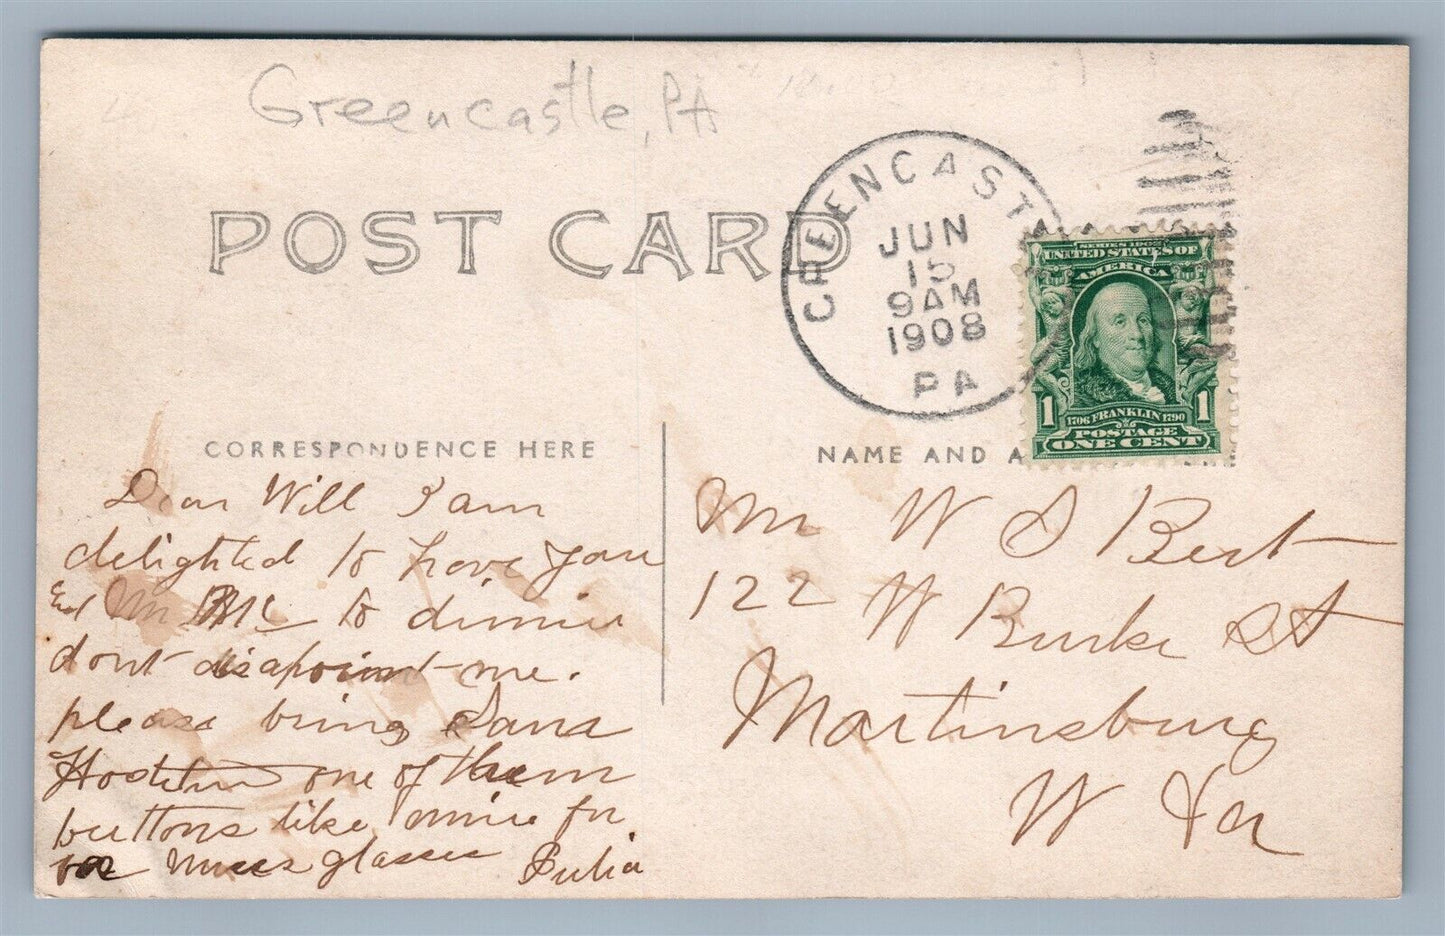 Greencastle, PA
POST CARD
GREENCAST
JUN
15
9AM
1908
PA
SERIES 1902
UNITED STATES OF
AMERICA
1 1706 FRANKLIN 1790 1
POSTAGE
ONE CENT
CORRESPONDENCE HERE
NAME AND A
Dear Will I am
delighted to have you
to dinner
dont disapoint me.
please bring
one of them
buttons like mine for
glasses Julia
Mr W S Bert
122 W Burke St
Martinsburg
W Va